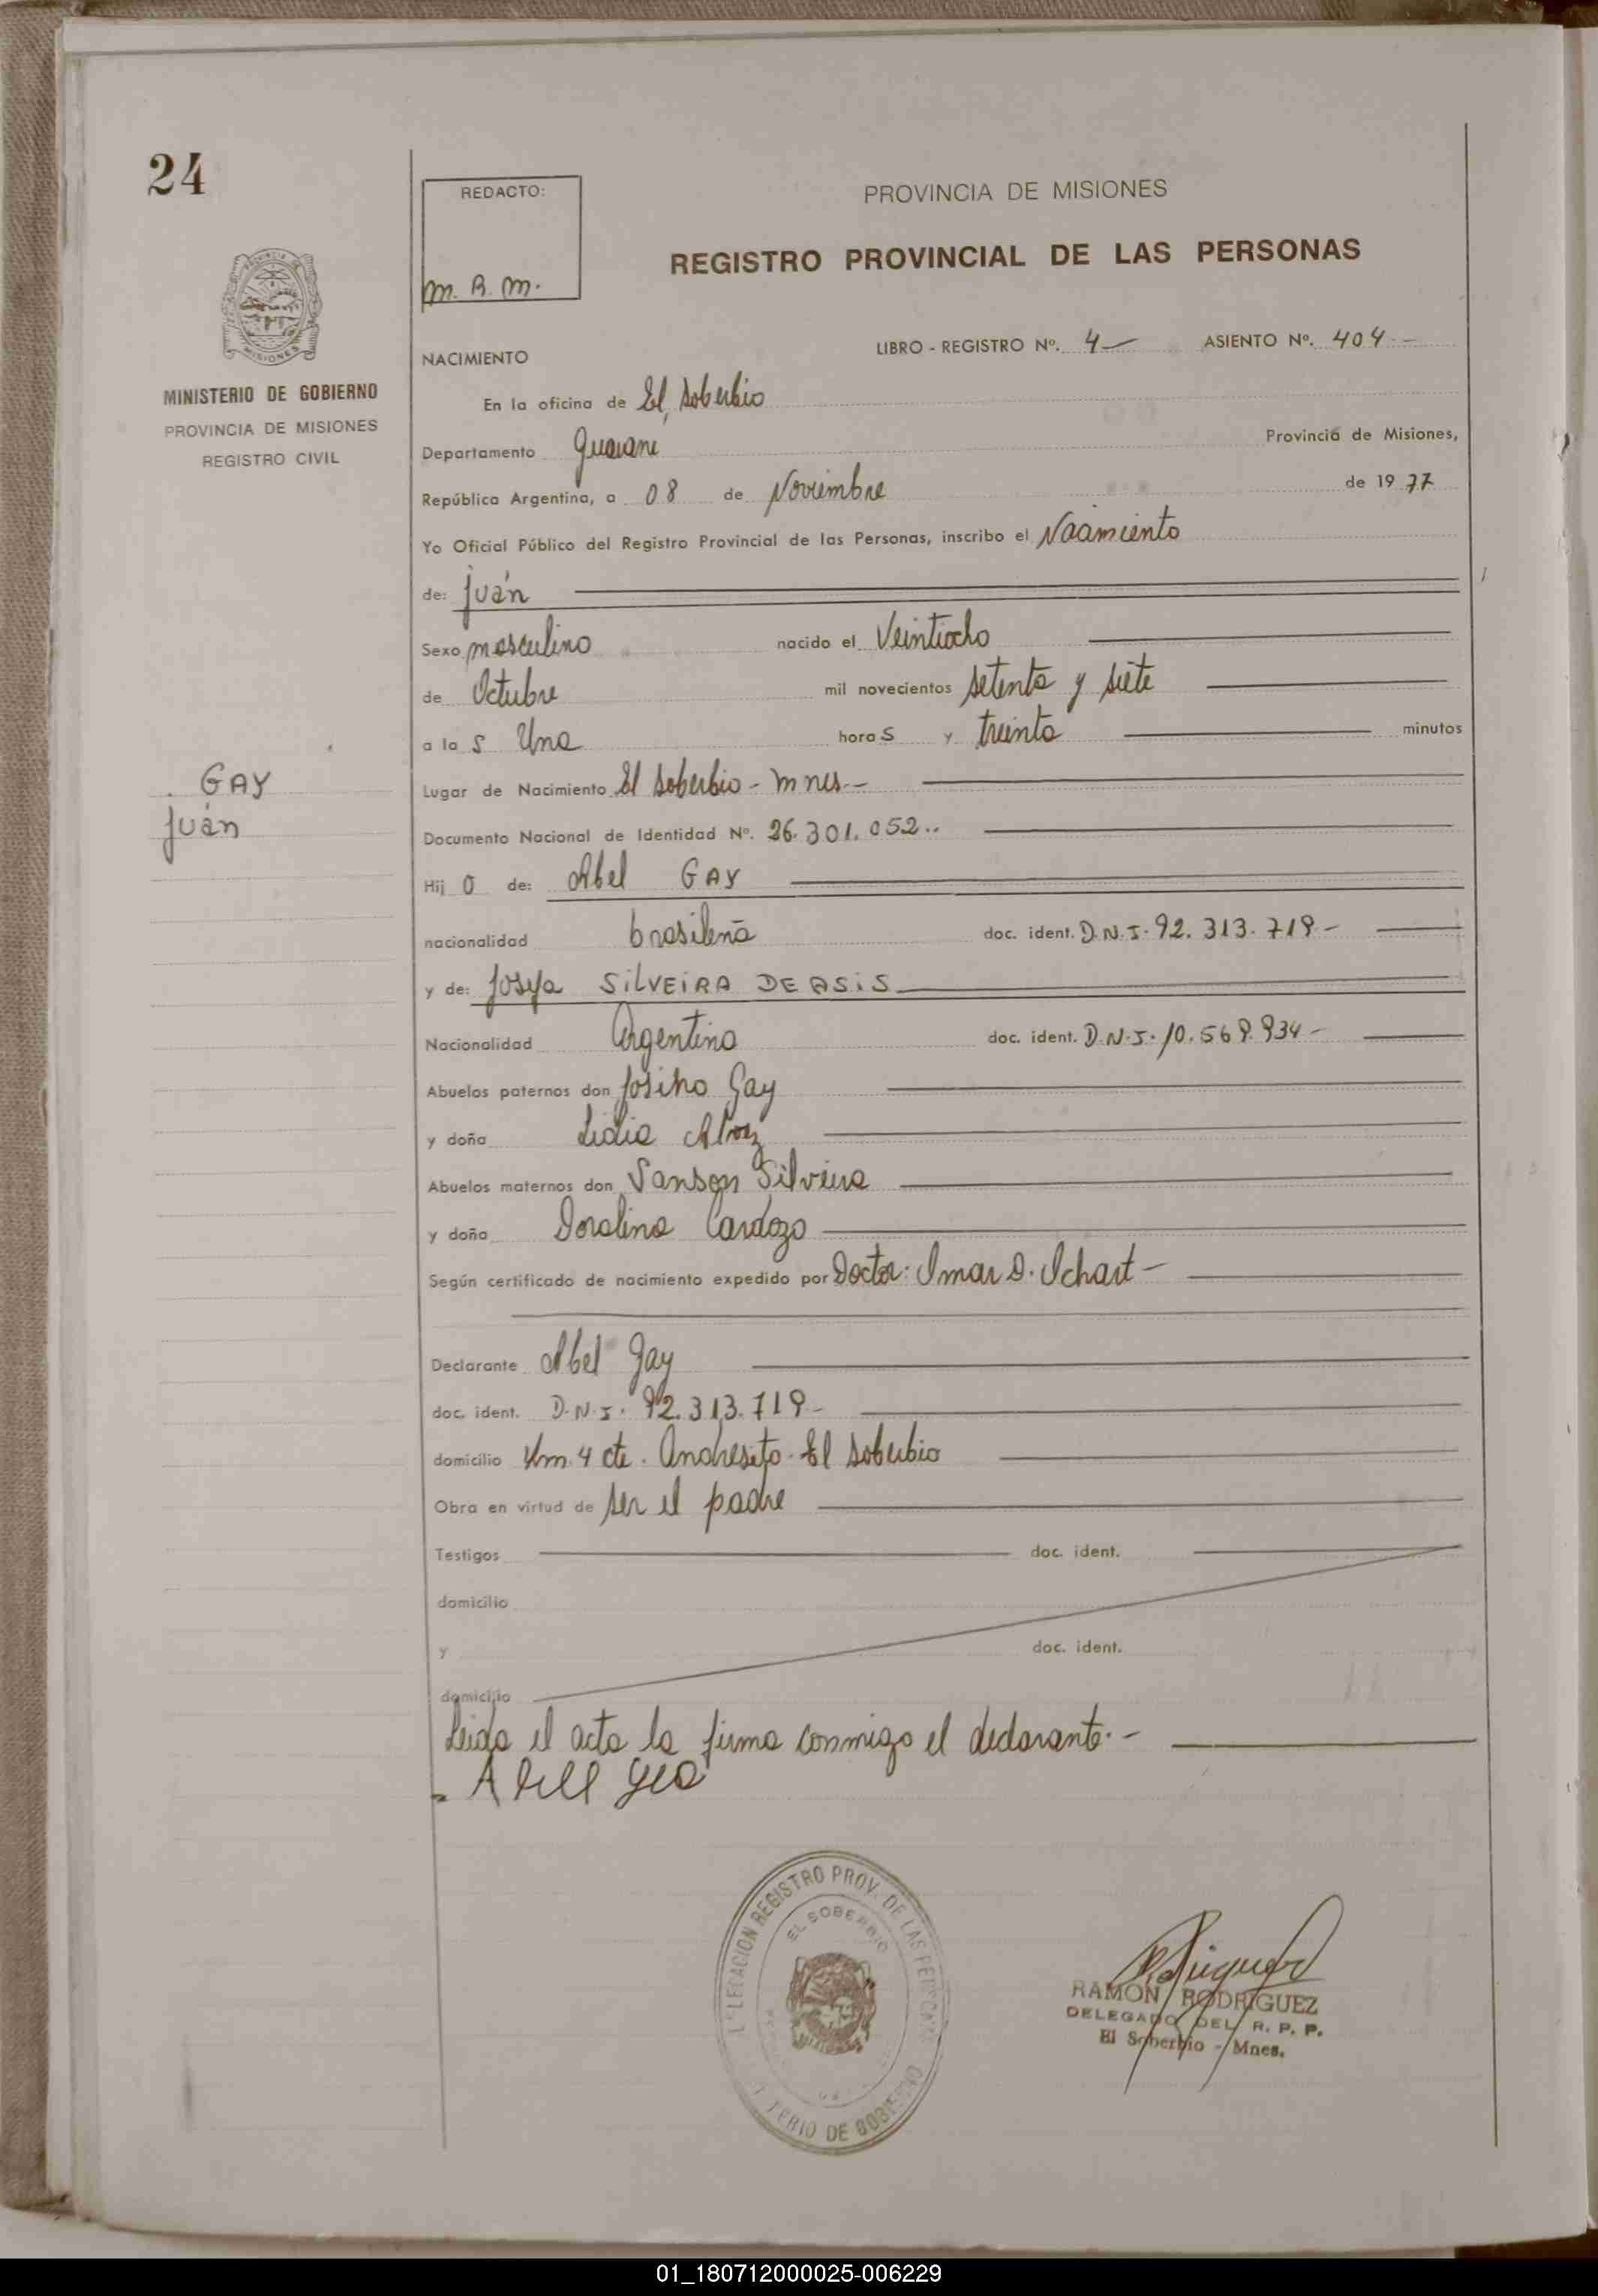 24
REDACTO:
m. R. m.
PROVINCIA DE MISIONES
REGISTRO PROVINCIAL DE LAS PERSONAS
MISIONES
MINISTERIO DE GOBIERNO
PROVINCIA DE MISIONES
REGISTRO CIVIL
NACIMIENTO
LIBRO - REGISTRO Nº. 4 ASIENTO Nº. 404.-
En la oficina de El Soberbio
Departamento Guarani Provincia de Misiones,
República Argentina, a 08 de Noviembre de 1977
Yo Oficial Público del Registro Provincial de las Personas, inscribo el Nacimiento
de: Juán
Sexo masculino nacido el Veintiocho
de Octubre mil novecientos setenta y siete
a las Una horas y treinta minutos
GAY
Juán
Lugar de Nacimiento El Soberbio - Mnes.-
Documento Nacional de Identidad Nº. 26.301.052..
Hijo de: Abel GAY
nacionalidad brasileña doc. ident. D.N.I. 92.313.719-
y de: Josefa SILVEIRA DE ASIS
Nacionalidad Argentina doc. ident. D.N.I. 10.569.934-
Abuelos paternos don Josiño Gay
y doña Lidia
Abuelos maternos don Sanson Silveira
y doña Doralina Cardozo
Según certificado de nacimiento expedido por Doctor: Omar D. Ichart -
Declarante Abel Gay
doc. ident. D.N.I. 92.313.719-
domicilio Km. 4 cte. Andresito. El Soberbio
Obra en virtud de ser el padre
Testigos doc. ident.
domicilio
y doc. ident.
domicilio
Leida el acta la firma conmigo el declarante.-
REGISTRO PROV. DE LAS
EL SOBERBIO
RAMON RODRIGUEZ
DELEGADO DEL R. P. P.
El Soberbio - Mnes.
01_180712000025-006229